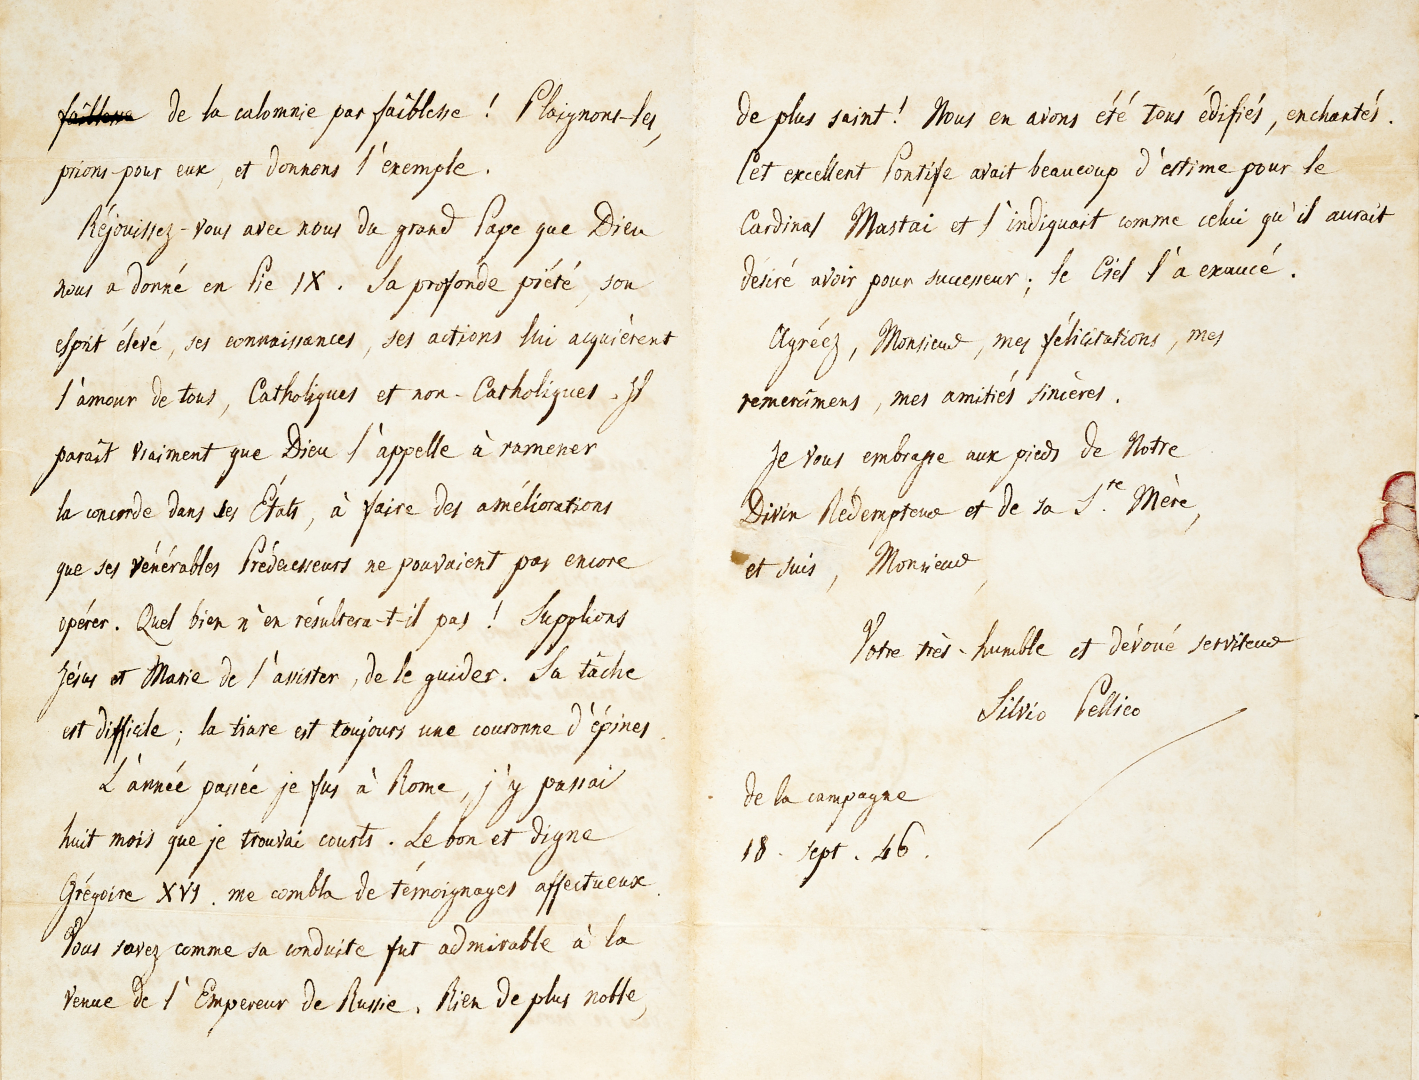 de la calomnie par faiblesse ! Plaignons-les,
prions pour eux, et donnons l'exemple.
Réjouissez-vous avec nous du grand Pape que Dieu
nous a donné en Pie IX. Sa profonde piété, son
esprit élevé, ses connaissances, ses actions lui acquièrent
l'amour de tous, Catholiques et non-Catholiques. Il
paraît vraiment que Dieu l'appelle à ramener
la concorde dans ses États, à faire des améliorations
que ses vénérables Prédécesseurs ne pouvaient pas encore
opérer. Quel bien n'en résultera-t-il pas ! Supplions
Jésus et Marie de l'assister, de le guider. Sa tâche
est difficile ; la tiare est toujours une couronne d'épines.
L'année passée je fus à Rome, j'y passai
huit mois que je trouvai courts. Le bon et digne
Grégoire XVI. me combla de témoignages affectueux.
Vous savez comme sa conduite fut admirable à la
venue de l'Empereur de Russie. Rien de plus noble,
de plus saint ! Nous en avons été tous édifiés, enchantés.
Cet excellent Pontife avait beaucoup d'estime pour le
Cardinal Mastai et l'indiquait comme celui qu'il aurait
désiré avoir pour successeur ; le Ciel l'a exaucé.
Agréez, Monsieur, mes félicitations, mes
remercîmens, mes amitiés sincères.
Je vous embrasse aux pieds de Notre
Divin Rédempteur et de sa S.te Mère,
et suis, Monsieur,
Votre très-humble et dévoué serviteur
Silvio Pellico
de la campagne
18. sept. 46.